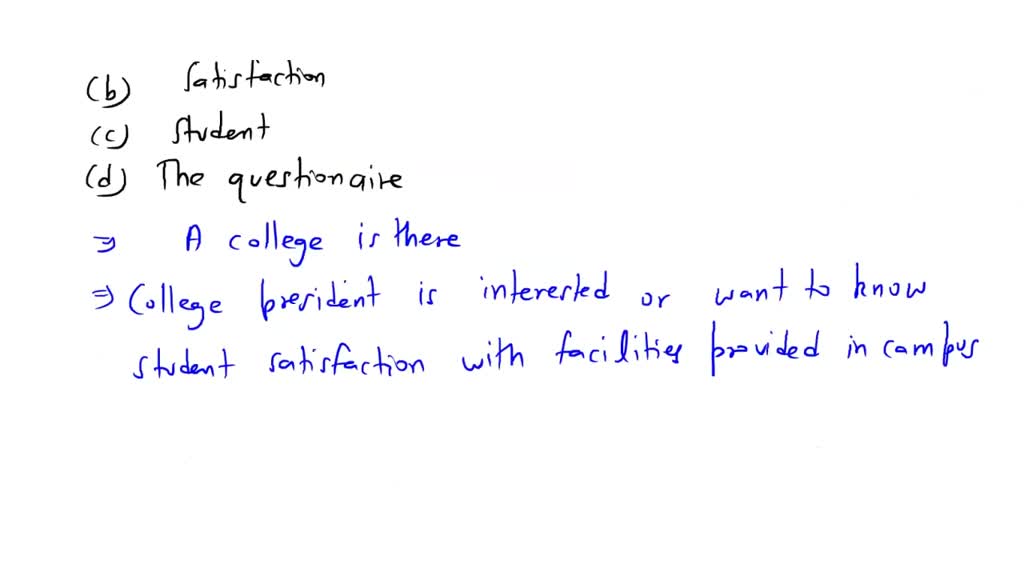 (b) Satisfaction
(c) Student
(d) The questionaire
⇒ A college is there
⇒ College president is interested or want to know
student satisfaction with facilities provided in campus